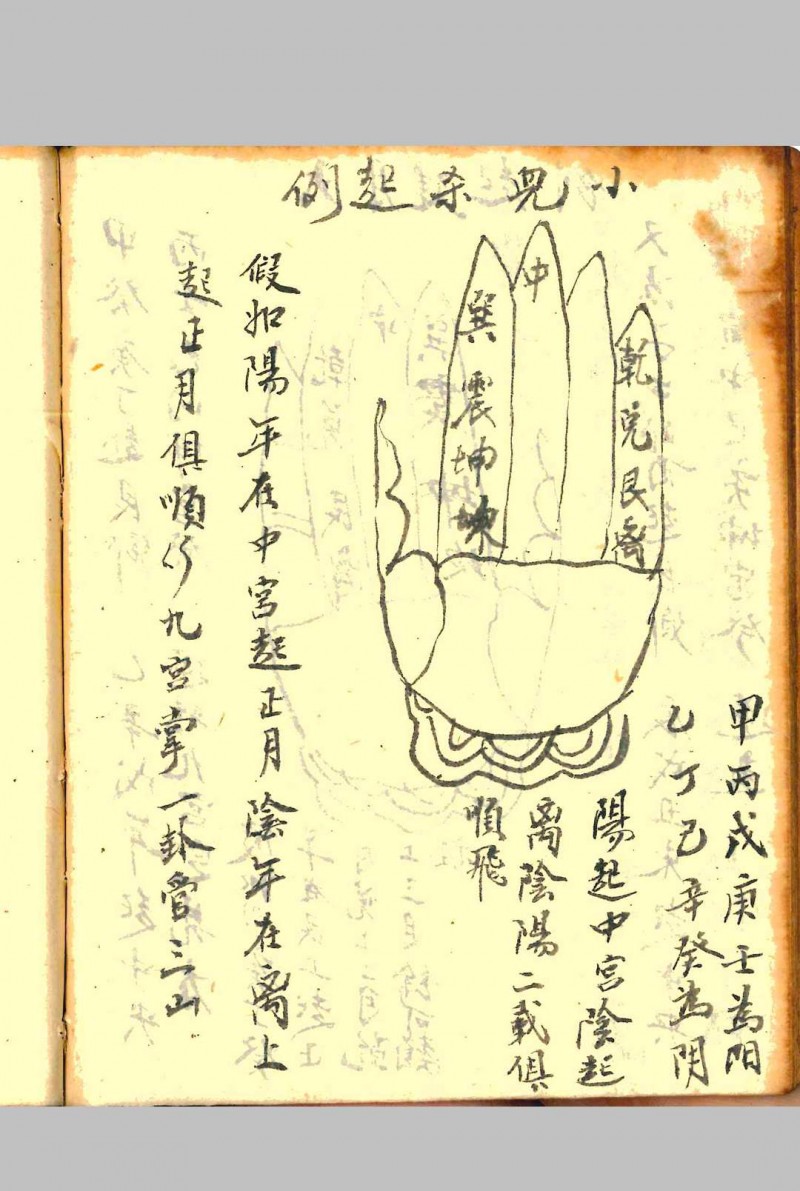 小兒杀起例
甲丙戌庚壬為阳
乙丁己辛癸為阴
陽起中宮陰起
离陰陽二載俱
順飛
乾兌艮离
中
巽震坤坎
假如陽年在中宮起正月陰年在离上
起正月俱順行九宮掌一卦管三山